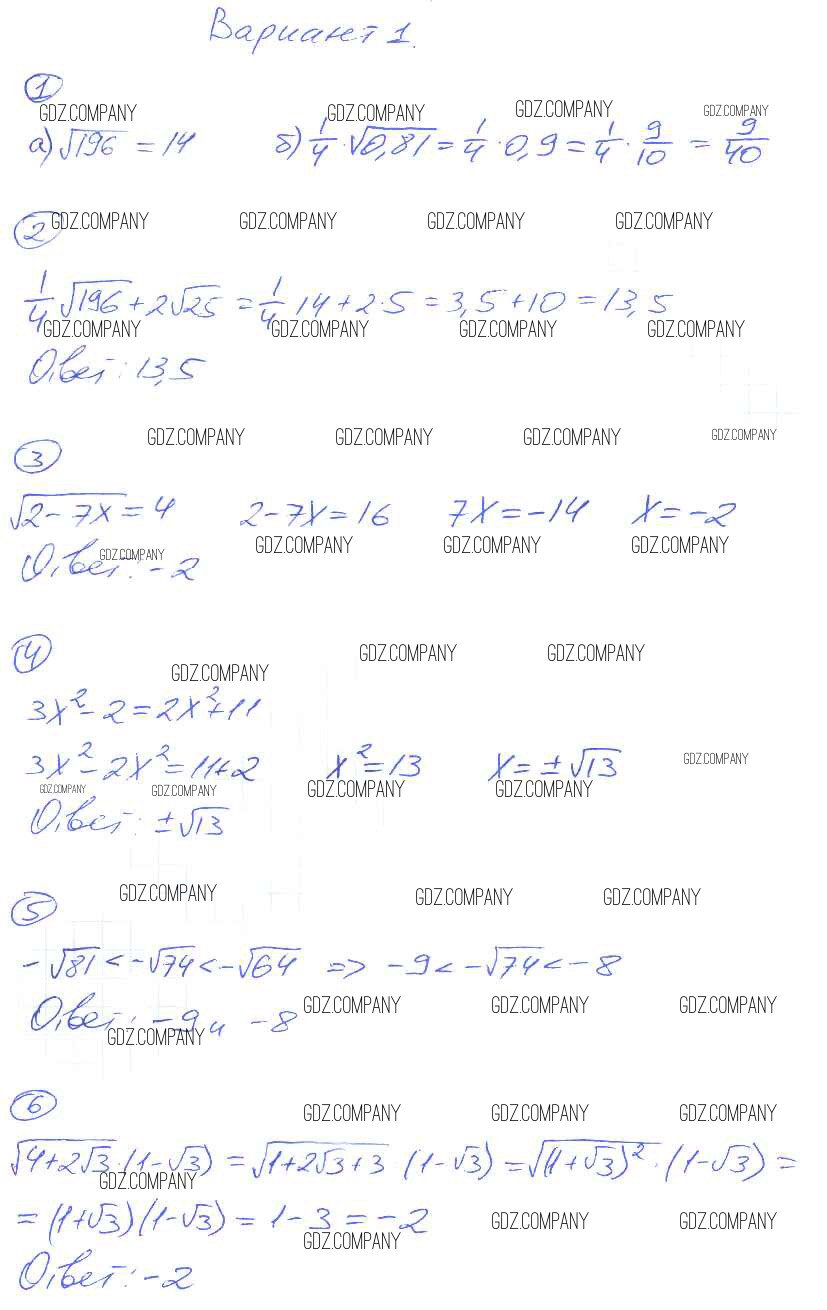 Вариант 1.
1
GDZ.COMPANY GDZ.COMPANY GDZ.COMPANY GDZ.COMPANY
а) √196 = 14 б) 1/4 · √0,81 = 1/4 · 0,9 = 1/4 · 9/10 = 9/40
2 GDZ.COMPANY GDZ.COMPANY GDZ.COMPANY GDZ.COMPANY
1/4 √196 + 2√25 = 1/4 · 14 + 2·5 = 3,5 + 10 = 13,5
GDZ.COMPANY GDZ.COMPANY GDZ.COMPANY GDZ.COMPANY
Ответ: 13,5
GDZ.COMPANY GDZ.COMPANY GDZ.COMPANY GDZ.COMPANY
3
√(2-7x) = 4 2-7x=16 7x=-14 x=-2
GDZ.COMPANY GDZ.COMPANY GDZ.COMPANY GDZ.COMPANY
Ответ: -2
4
GDZ.COMPANY GDZ.COMPANY GDZ.COMPANY
3x²-2=2x²+11
3x²-2x²=11+2 x²=13 x=±√13 GDZ.COMPANY
GDZ.COMPANY GDZ.COMPANY GDZ.COMPANY GDZ.COMPANY
Ответ: ±√13
GDZ.COMPANY GDZ.COMPANY GDZ.COMPANY
5
-√81 < -√74 < -√64 => -9 < -√74 < -8
GDZ.COMPANY GDZ.COMPANY GDZ.COMPANY
Ответ: -9 и -8
GDZ.COMPANY
6
GDZ.COMPANY GDZ.COMPANY GDZ.COMPANY
√(4+2√3) · (1-√3) = √(1+2√3+3) · (1-√3) = √((1+√3)²) · (1-√3) =
GDZ.COMPANY
= (1+√3)(1-√3) = 1-3 = -2
GDZ.COMPANY GDZ.COMPANY GDZ.COMPANY
Ответ: -2